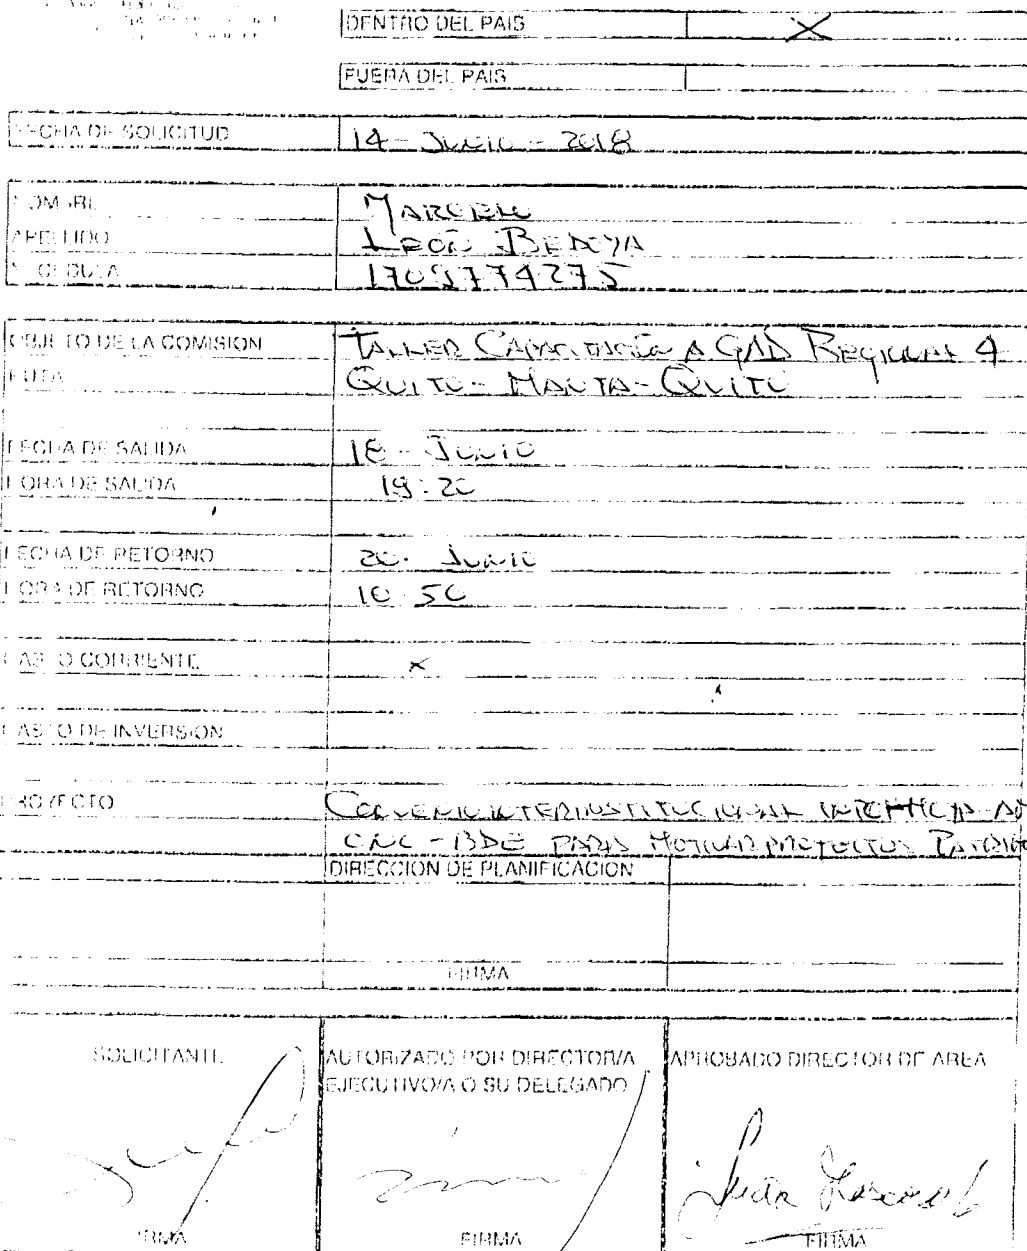 DENTRO DEL PAIS X
FUERA DEL PAIS
FECHA DE SOLICITUD 14 - JUNIO - 2018
NOMBRE MARCELO
APELLIDO LEON BEDOYA
CEDULA 1709774275
OBJETO DE LA COMISION TALLER CAPACITACIÓN A GAD REGIONAL 4
RUTA QUITO - MANTA - QUITO
FECHA DE SALIDA 18 - JUNIO
HORA DE SALIDA 19:20
FECHA DE RETORNO 20 - JUNIO
HORA DE RETORNO 10 50
GASTO CORRIENTE X
GASTO DE INVERSION
PROYECTO CONVENIO INTERINSTITUCIONAL
CNC - BDE PARA PROYECTOS
DIRECCION DE PLANIFICACION
FIRMA
SOLICITANTE AUTORIZADO POR DIRECTOR/A APROBADO DIRECTOR DE AREA
EJECUTIVO/A O SU DELEGADO
FIRMA FIRMA FIRMA